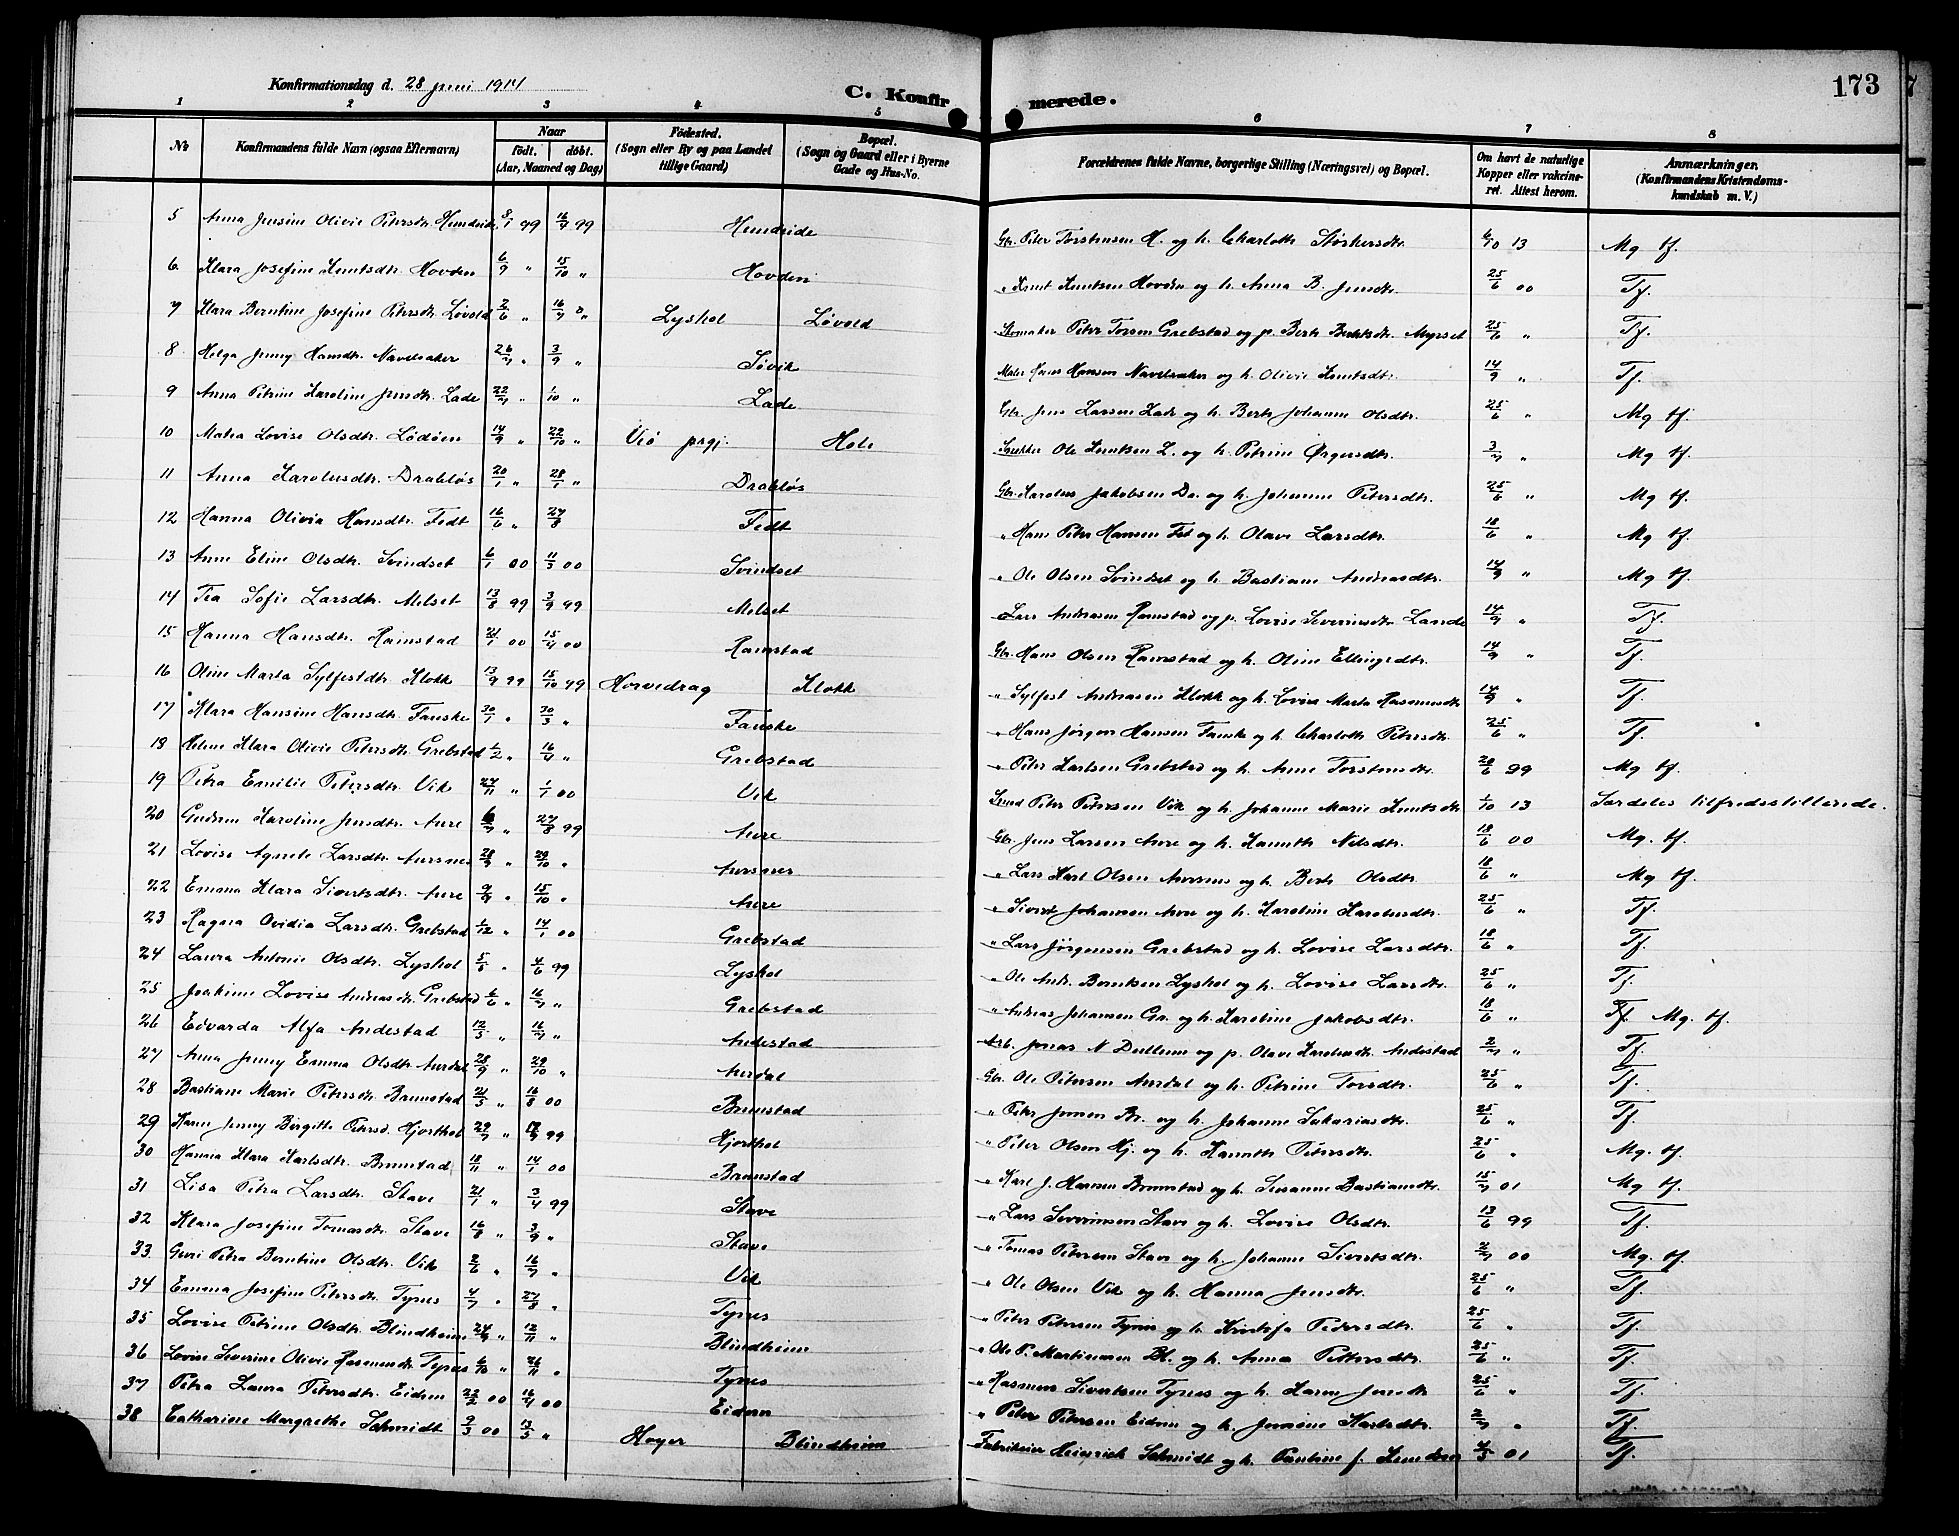 Konfirmationsdag d. 28 juni 1914
C. Konfirmerede.
173
1 2 3 4 5 6 7 8
No
Konfirmandens fulde Navn (ogsaa Efternavn)
Naar
født. døbt.
(Aar, Maaned og Dag)
Fødested.
(Sogn eller By og paa Landet tillige Gaard)
Bopæl.
(Sogn og Gaard eller i Byerne Gade og Hus-No.
Forældrenes fulde Navne, borgerlige Stilling (Næringsvei) og Bopæl.
Om havt de naturlige Kopper eller vakcineret. Attest herom.
Anmærkninger.
(Konfirmandens Kristendomskundskab m. V.)
5 Anna Jensine Olivie Petersdtr. Hundeide 99 16/4 99 Hundeide Gbr. Peter Torstensen H. og h. Charlotte 13 Mg tf.
6 Klara Josefine Knutsdtr. Hovden 6/9 " 15/10 " Hovden " Knut Knutsen Hovden og h. Anna B. Jensdtr. 25/6 00 Tf.
7 Klara Berntine Josefine Petersdtr. Løvold 2/6 " 16/7 " Lyshol Løvold Peter Grebstad og p. Myrset 25/6 " Tf.
8 Helga Jenny Hansdtr. Navelsaker 26/7 " 3/9 " Søvik Maler Hans Hansen Navelsaker og h. Olivie Knutsdtr. 14/9 " Tf.
9 Anna Petrine Karoline Jensdtr. Lade 22/7 " 1/10 " Lade Gbr. Jens Larsen Lade og h. Berte Johanne Olsdtr. 25/6 " Mg tf.
10 Lovise Olsdtr. Lødøen 14/9 " 22/10 " Veø prgj. Hole Ole Knutsen L. og h. Petrine 3/7 " Mg tf.
11 Anna Karolusdtr. Drabløs 20/1 " 28/1 " Drabløs Gbr. Karolus Jakobsen Dr. og h. Johanne Petersdtr. 25/6 " Mg tf.
12 Hanna Olivia Hansdtr. Fedt 16/6 " 27/8 Fedt " Hans Peter Hansen Fet og h. Olave Larsdtr. 18/6 " Mg tf.
13 Anne Eline Olsdtr. Svindset 6/1 00 11/3 00 Svindset " Ole Olsen Svindset og h. Bastiane Andreasdtr. 14/9 " Mg tf.
14 Tea Sofie Larsdtr. Melset 13/8 99 3/9 99 Melset Lars Andreasen Ramstad og p. Lovise Severinsdtr. Lande 14/9 " Tf.
15 Hanna Hansdtr. Ramstad 21/1 00 15/4 00 Ramstad Gbr. Hans Olsen Ramstad og h. Oline Ellingsdtr. 14/9 " Tf.
16 Oline Marta Sylfestdtr. Klokk 13/9 99 15/10 99 Horvedrag Klokk " Sylfest Andreasen Klokk og h. Lovise Marta Rasmusdtr. 14/9 " Tf.
17 Klara Hansine Hansdtr. Fauske 30/1 " 30/3 " Fauske " Hans Jørgen Hansen Fauske og h. Charlotte Petersdtr. 25/6 " Tf.
18 Helene Klara Olivie Petersdtr. Grebstad 1/2 " 16/4 " Grebstad " Peter Karlsen Grebstad og h. Anne Torstensdtr. 20/6 99 Mg tf.
19 Petra Emilie Petersdtr. Vik 27/11 " 1/1 00 Vik Smed Peter Petersen Vik og h. Johanne Marie Knutsdtr. 1/10 13 Særdeles tilfredsstillende.
20 Gudrun Karoline Jensdtr. Aure 6/7 " 27/8 99 Aure Gbr. Jens Larsen Aure og h. Hannette Nilsdtr. 18/6 00 Mg. tf.
21 Lovise Agnete Larsdtr. Aursnes 28/9 " 29/10 " Aursnes " Lars Karl Olsen Aursnes og h. Berte Olsdtr. 18/6 " Mg tf.
22 Emma Klara Sivertsdtr. Aure 9/9 " 15/10 " Aure " Sivert Johansen Aure og h. Karoline Karolusdtr. 25/6 " Tf.
23 Ragna Ovidia Larsdtr. Grebstad 1/12 " 14/1 00 Grebstad " Lars Jørgensen Grebstad og h. Lovise Larsdtr. 18/6 " Tf.
24 Laura Antonie Olsdtr. Lyshol 5/5 " 4/6 99 Lyshol " Ole Andr. Berntsen Lyshol og h. Lovise Larsdtr. 25/6 " Tf.
25 Joakime Lovise Andreasdtr. Grebstad 6/6 " 16/7 " Grebstad " Andreas Johansen Gr. og h. Karoline Jakobsdtr. 18/6 " Tf. Mg. tf.
26 Edvarda Alfa Andestad 12/5 " 16/7 " Andestad Arb. Jonas N Dullum og p. Olave Karolusdtr. Andestad 2/7 " Tf.
27 Anna Jenny Emma Olsdtr. Aurdal 28/9 " 29/10 " Aurdal Gbr. Ole Petersen Aurdal og h. Petrine Torsdtr. 25/6 " Tf.
28 Bastiane Marie Petersdtr. Brunstad 21/5 " 16/8 00 Brunstad " Peter Jonsen Br. og h. Johanne Sakariasdtr. 25/6 " Tf.
29 Karen Jenny Birgitte Petersd. Hjorthol 29/7 " 99 Hjorthol " Peter Olsen Hj. og h. Hannette Petersdtr. 25/6 " Mg. tf.
30 Hanna Klara Karlsdtr. Brunstad 18/11 " 14/1 00 Brunstad " Karl J. Hansen Brunstad og h. Susanne Bastiansdtr. 15/7 01 Mg tf.
31 Lisa Petra Larsdtr. Stave 21/1 " 3/4 99 Stave " Lars Severinsen Stave og h. Lovise Olsdtr. 13/6 99 Tf.
32 Klara Josefine Tomasdtr. Stave 16/8 " 3/9 " Stave " Tomas Petersen Stave og h. Johanne Sivertsdtr. 2/7 00 Mg. tf.
33 Guri Petra Berntine Olsdtr. Vik 2/6 " 16/7 " Vik " Ole Olsen Vik og h. Hanna Jensdtr. 25/6 " Tf.
34 Emma Josefine Petersdtr. Tynes 4/7 " 27/8 " Tynes " Peter Petersen Tynes og h. Petersdtr. 25/6 " Tf.
35 Lovise Petrine Olsdtr. Blindheim 24/9 " 12/11 " Blindheim " Ole P. Martinusen Bl. og h. Anna Pettersdtr. 25/6 " Tf.
36 Lovise Severine Olivie Rasmusdtr. Tynes 6/10 " 26/11 " Tynes " Rasmus Sivertsen Tynes og h. Karen Jensdtr. 25/6 " Tf.
37 Petra Laura Petersdtr. Eidem 22/2 00 16/4 00 Eidem " Peter Petersen Eidem og h. Karlsdtr. 2/7 " Tf.
38 Catharine Margrethe Schmidt 9/3 00 13/5 " Hoyer Blindheim Fabrikeier Heinrich Schmidt og h. Pauline f. 01 Tf.